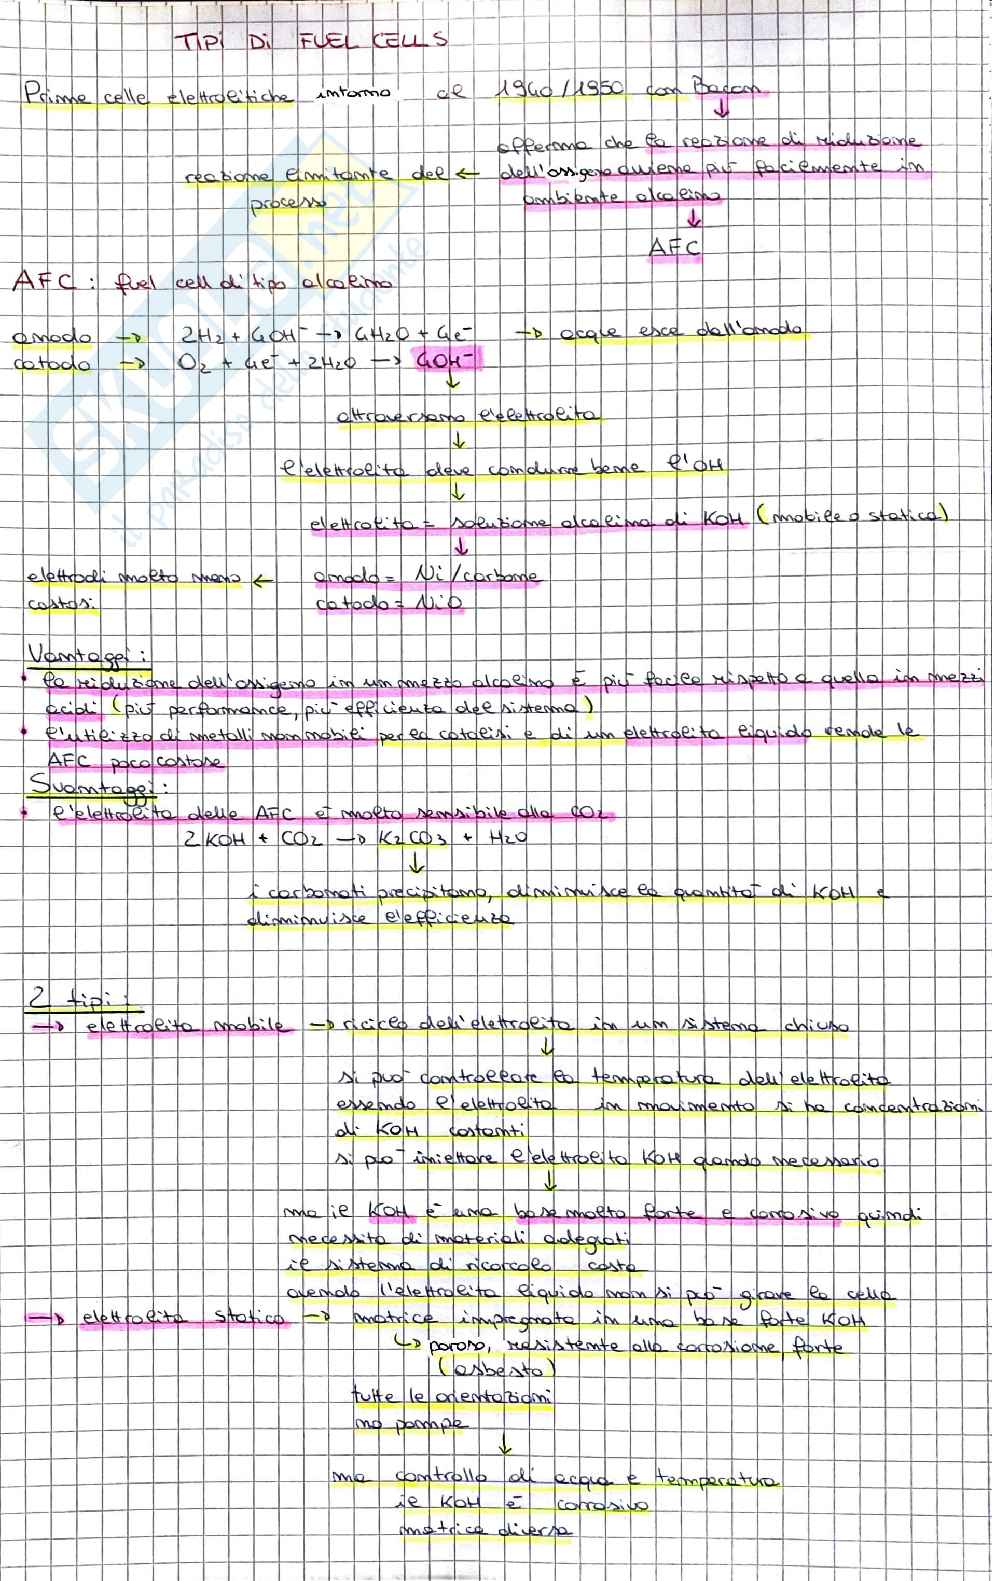 TIPI DI FUEL CELLS
Prime celle elettrolitiche intorno al 1940/1950 con Bacon
↓
afferma che la reazione di riduzione
reazione limitante del ← dell'ossigeno avviene più facilmente in
processo
ambiente alcalino
↓
AFC
AFC : fuel cell di tipo alcalino
anodo → 2H₂ + 4OH⁻ → 4H₂O + 4e⁻ → acqua esce dall'anodo
catodo → O₂ + 4e⁻ + 2H₂O → 4OH⁻
↓
attraversano l'elettrolita
↓
l'elettrolita deve condurre bene l'OH
↓
elettrolita = soluzione alcalina di KOH (mobile o statica)
↓
elettrodi molto meno ← anodo = Ni/carbone
costosi catodo = NiO
Vantaggi :
• la riduzione dell'ossigeno in un mezzo alcalino è più facile rispetto a quella in mezzi
acidi (più performance, più efficienza del sistema)
• l'utilizzo di metalli non nobili per la catalisi e di un elettrolita liquido rende le
AFC poco costose
Svantaggi :
• l'elettrolita delle AFC è molto sensibile alla CO₂
2KOH + CO₂ → K₂CO₃ + H₂O
↓
i carbonati precipitano, diminuisce la quantità di KOH e
diminuisce l'efficienza
2 tipi :
→ elettrolita mobile → riciclo dell'elettrolita in un sistema chiuso
↓
si può controllare la temperatura dell'elettrolita
essendo l'elettrolita in movimento si ha concentrazioni
di KOH costanti
si può iniettare l'elettrolita KOH quando necessario
↓
ma il KOH è una base molto forte e corrosiva quindi
necessita di materiali adeguati
il sistema di ricorcolo costa
avendo l'elettrolita liquido non si può girare la cella
→ elettrolita statico → matrice impregnata in una base forte KOH
↳ poroso, resistente alla corrosione forte
(asbesto)
tutte le orientazioni
no pompe
↓
ma controllo di acqua e temperatura
il KOH è corrosivo
matrice diversa
SKUOLA.net
il paradiso dello studente